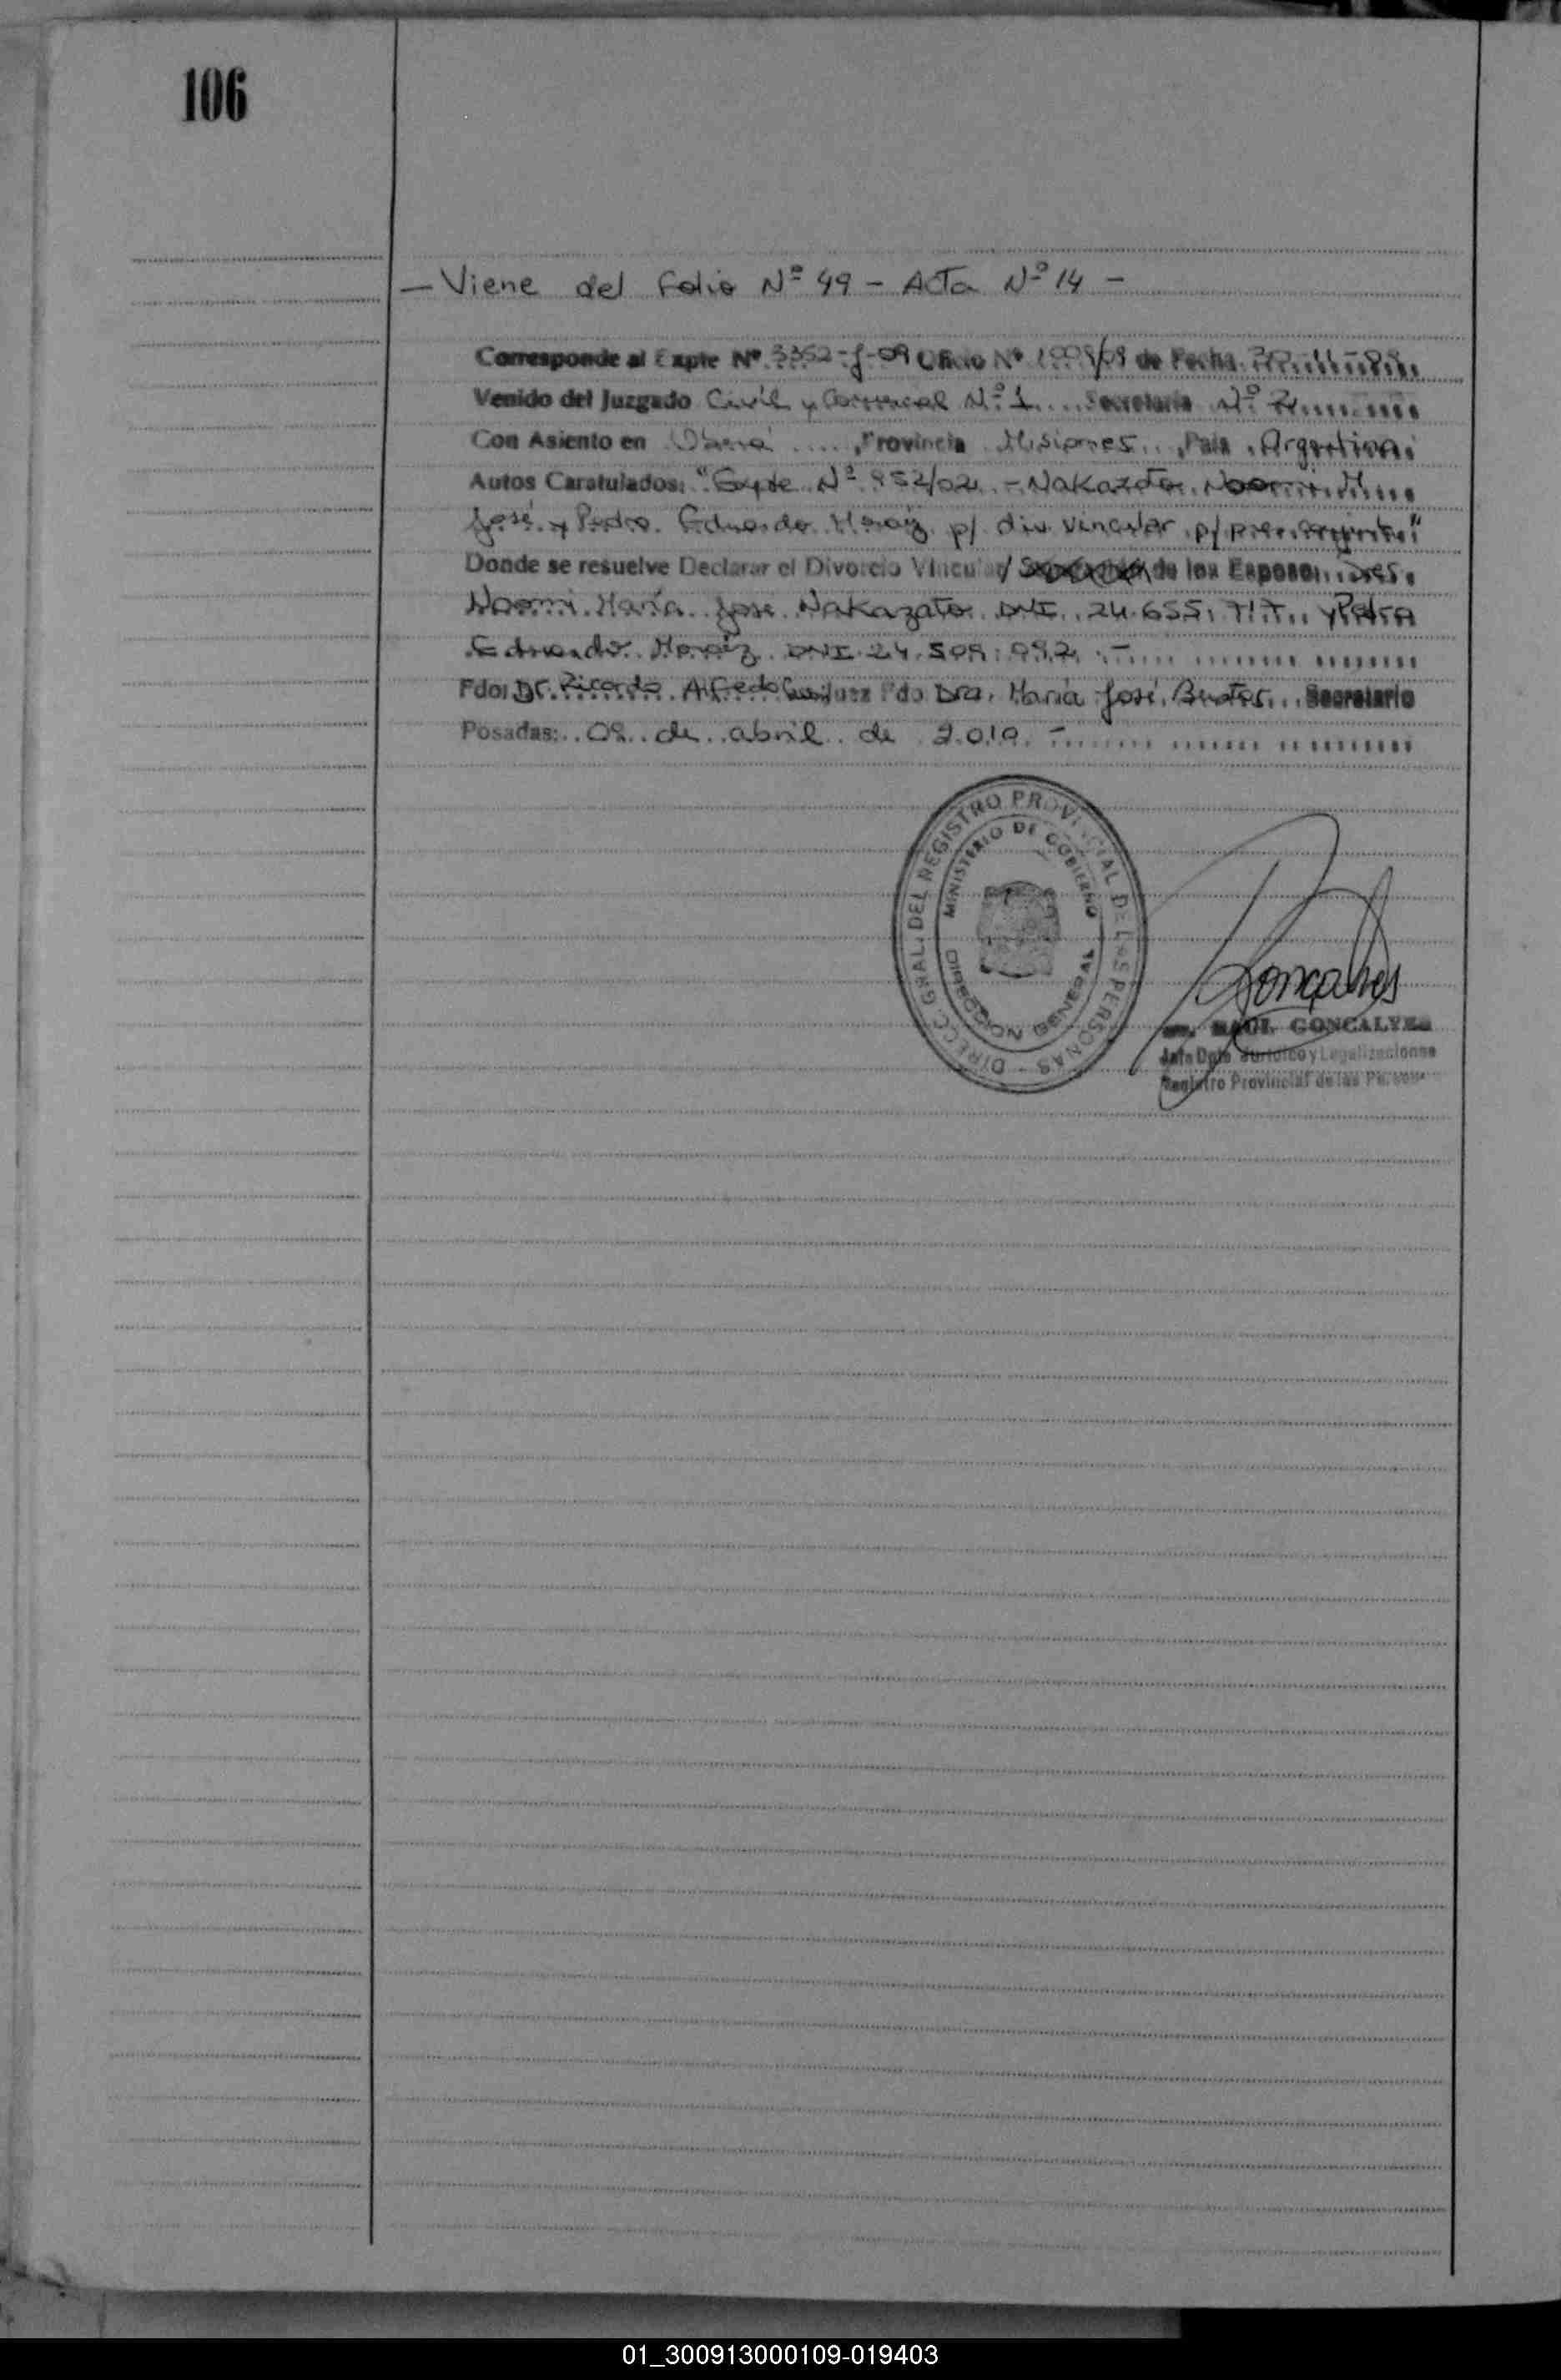 106
— Viene del Folio Nº 49 - Acta Nº 14 -
Corresponde al Expte Nº 3352-J-09 Oficio Nº 1009/09 de Fecha
Venido del Juzgado Civil y Comercial Nº 1 Secretaría Nº 2
Con Asiento en Oberá, Provincia Misiones, País Argentina
Autos Caratulados: "Expte Nº 952/02 - Nakazato Noemi M.
José y Pedro Eduardo p/ div. vincular p/ pres. conjunta"
Donde se resuelve Declarar el Divorcio Vincular/ de los Esposos: Sres.
Noemi María José Nakazato DNI 24.655.717 y Pedro
Eduardo DNI 24.509.092 -
Fdo: Dr. Ricardo Alfredo Juez Fdo Dra. María José Secretario
Posadas: 09 de abril de 2.010 -
DIRECC. GRAL. DEL REGISTRO PROVINCIAL DE LAS PERSONAS -
MINISTERIO DE GOBIERNO
DIRECCION GENERAL
Goncalves
RAUL GONCALVES
Jefe Dpto. Jurídico y Legalizaciones
Registro Provincial de las Personas
01_300913000109-019403